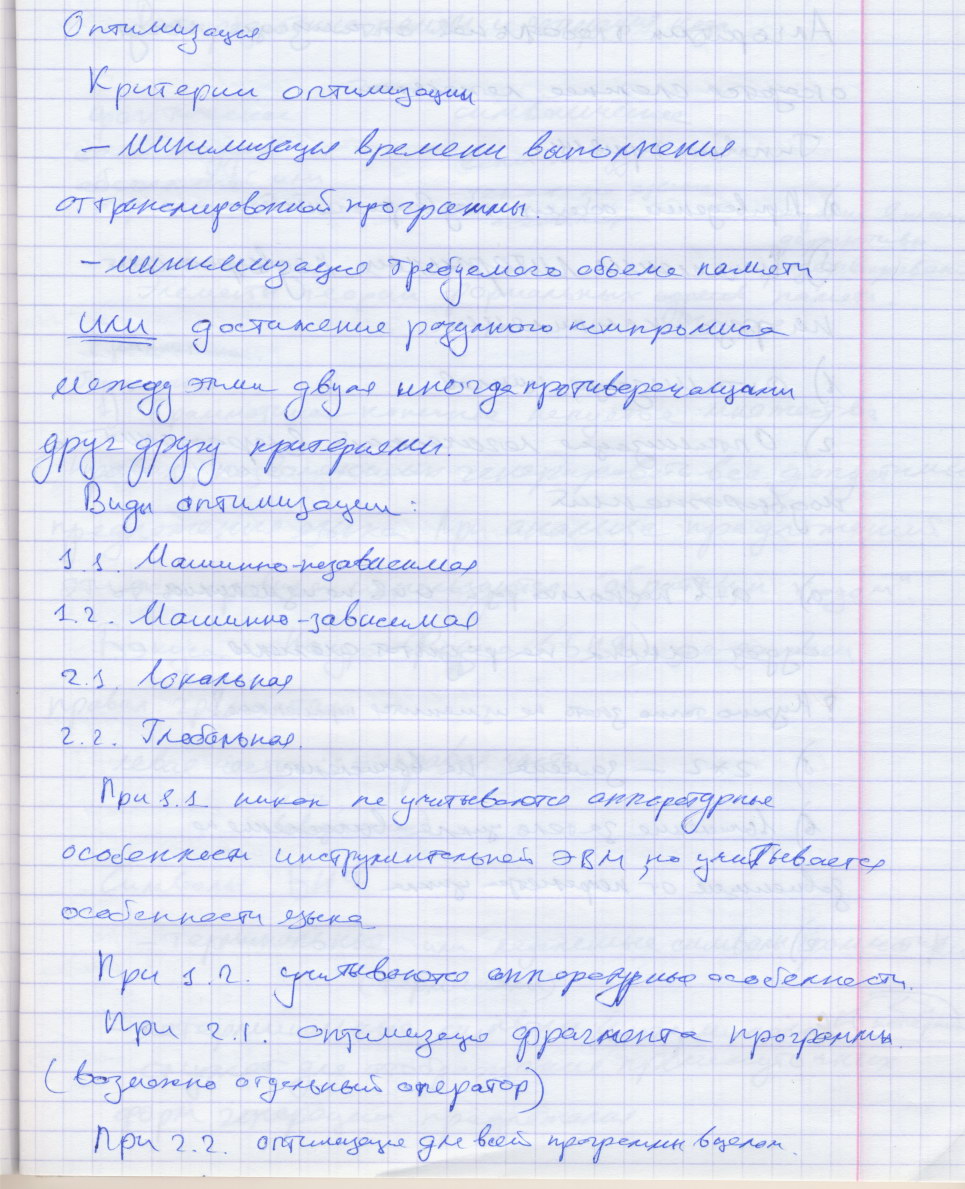 Оптимизация
Критерии оптимизации
– минимизация времени выполнения
оттранслированной программы.
– минимизация требуемого объема памяти
или достижение разумного компромиса
между этими двумя иногда противоречащими
друг другу критериями.
Виды оптимизации:
1.1. Машинно-независимая
1.2. Машинно-зависимая
2.1. Локальная
2.2. Глобальная.
При 1.1 никак не учитываются аппаратурные
особенности инструментальной ЭВМ, но учитывается
особенности языка
При 1.2. учитываются аппаратурные особенности.
При 2.1. оптимизация фрагмента программы.
(возможно отдельный оператор)
При 2.2. оптимизация для всей программы в целом.